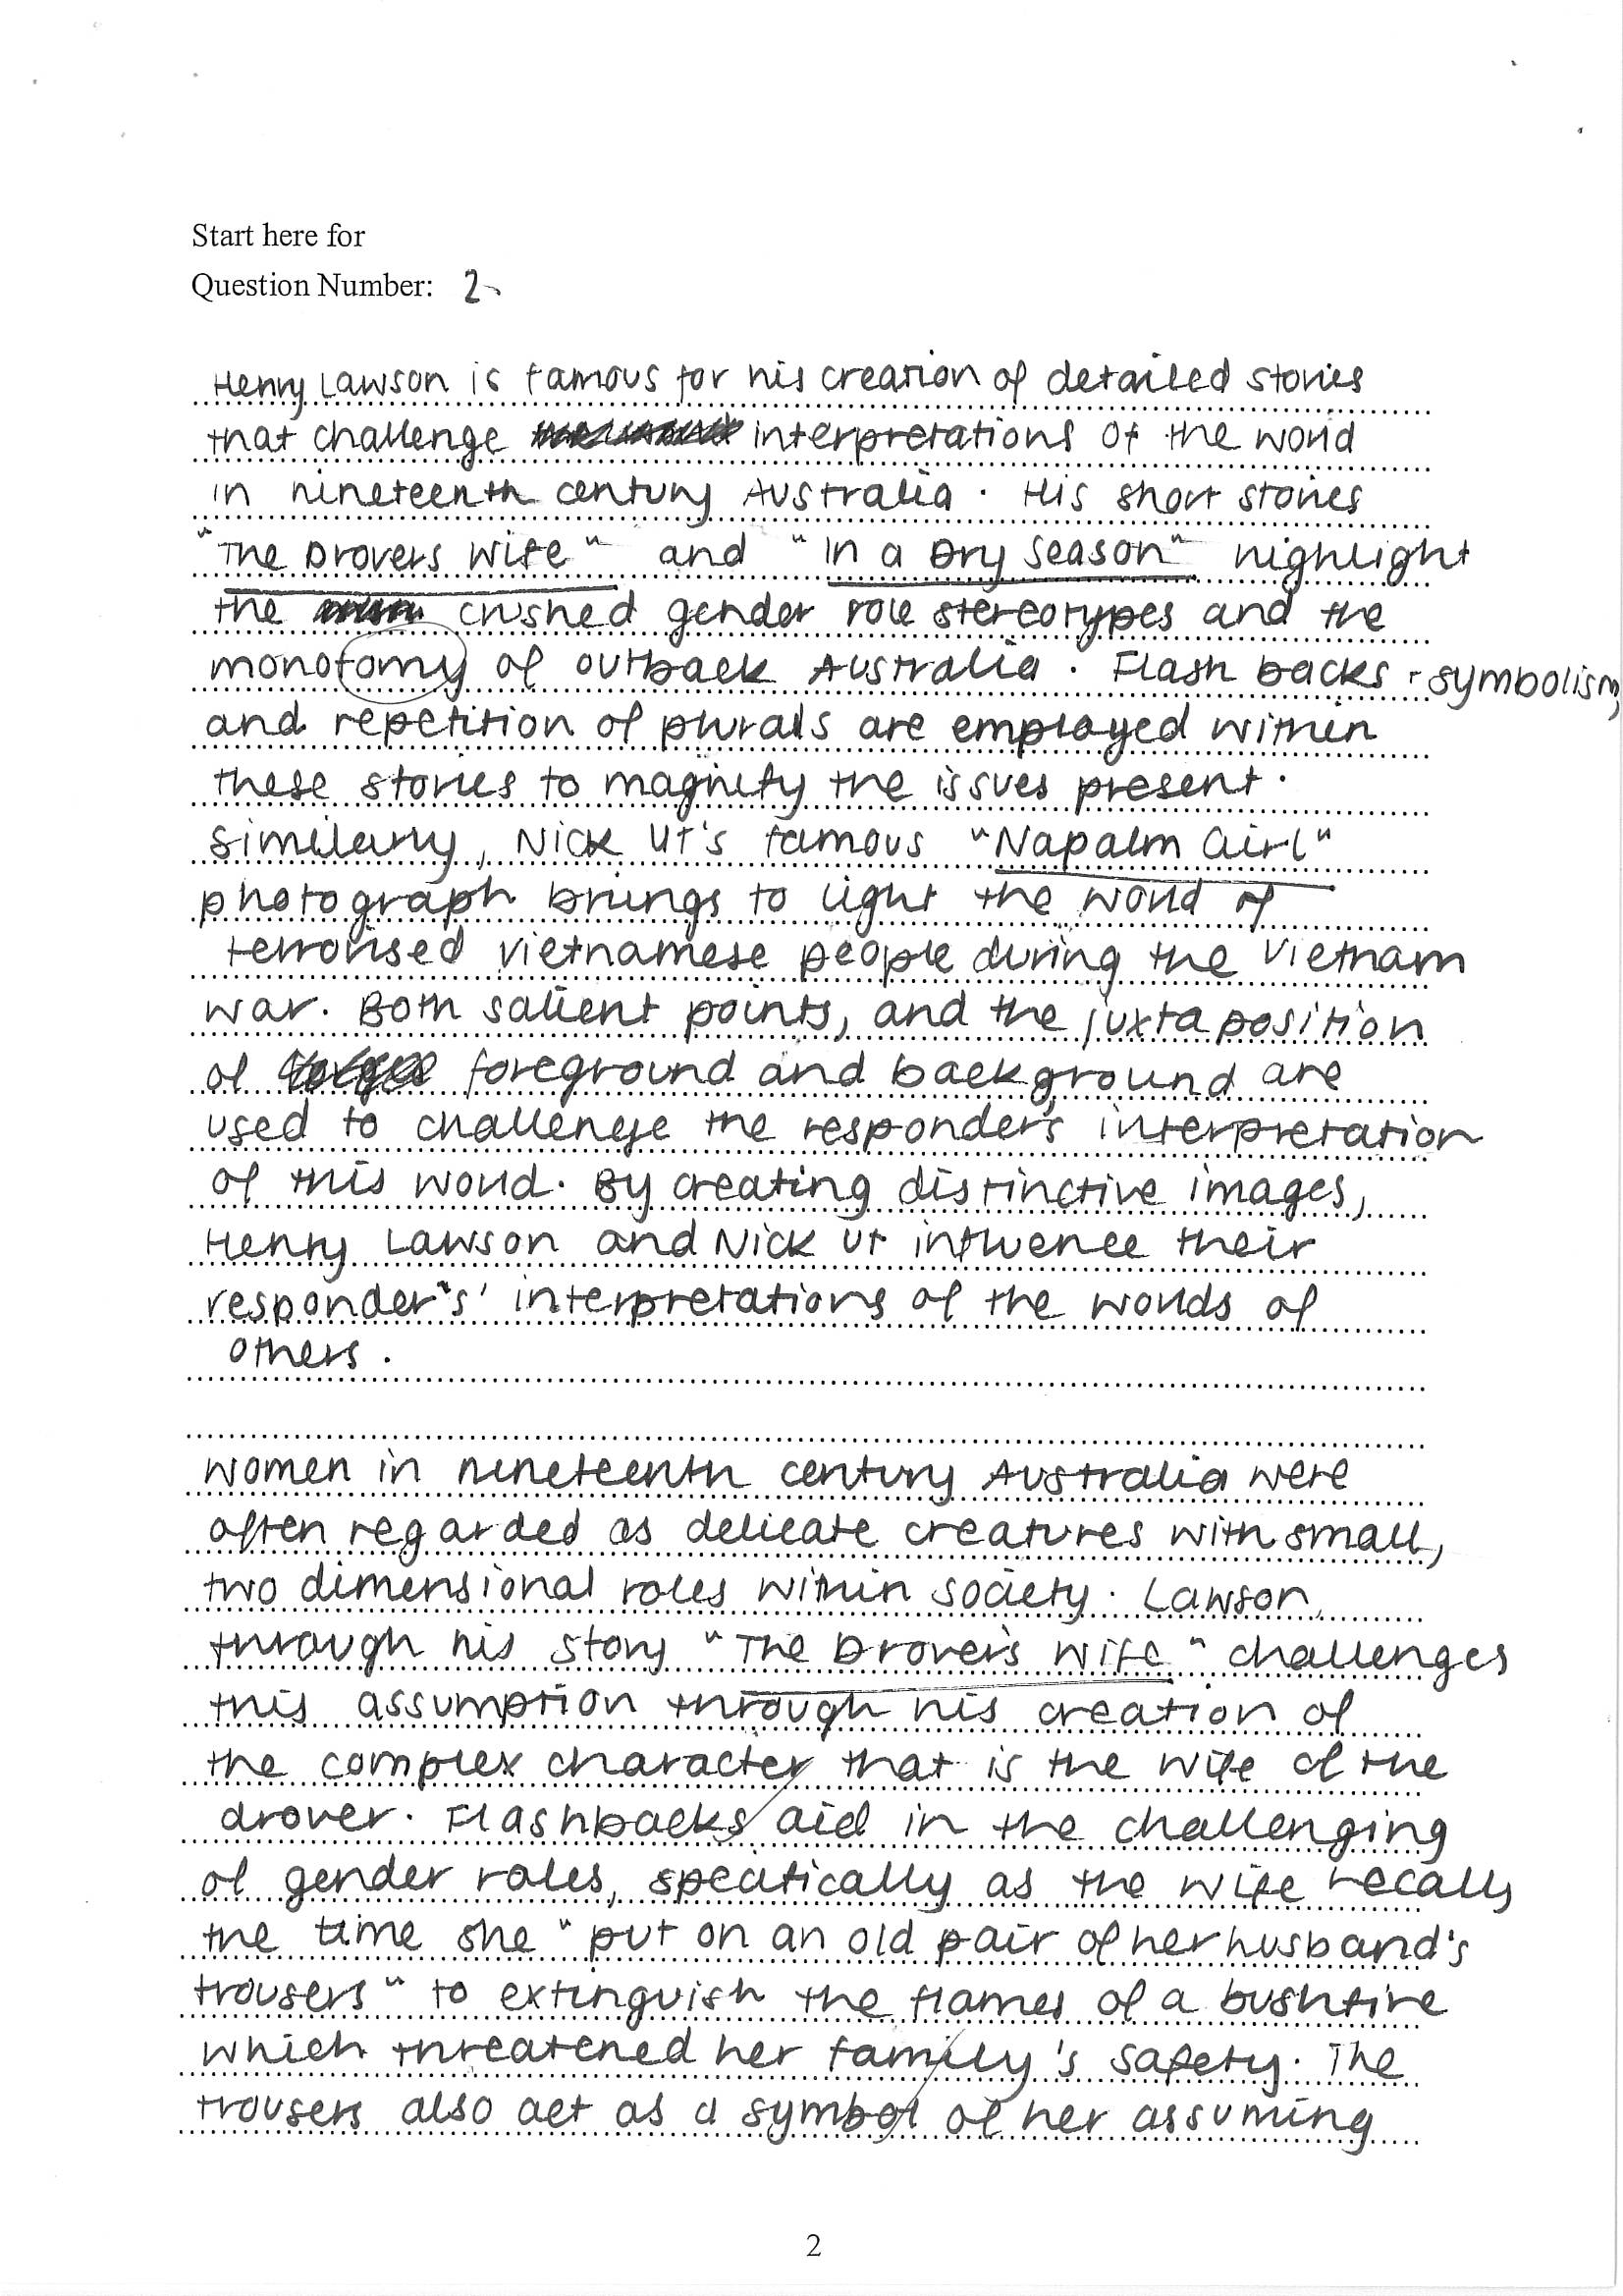 Start here for
Question Number: 2
Henry Lawson is famous for his creation of detailed stories
that challenge interpretations of the world
in nineteenth century Australia. His short stories
"The Drovers Wife" and "In a Dry Season" highlight
the crushed gender role stereotypes and the
monotomy of outback Australia. Flash backs, symbolism,
and repetition of plurals are employed within
these stories to magnify the issues present.
Similarly, Nick Ut's famous "Napalm Girl"
photograph brings to light the world of
terrorised Vietnamese people during the Vietnam
war. Both salient points, and the juxtaposition
of foreground and background are
used to challenge the responder's interpretation
of this world. By creating distinctive images,
Henry Lawson and Nick Ut influence their
responder's' interpretations of the worlds of
others.
Women in nineteenth century Australia were
often regarded as delicate creatures with small,
two dimensional roles within society. Lawson,
through his story "The Drover's Wife" challenges
this assumption through his creation of
the complex character that is the wife of the
drover. Flashbacks aid in the challenging
of gender roles, specifically as the wife recalls
the time she "put on an old pair of her husband's
trousers" to extinguish the flames of a bushfire
which threatened her family's safety. The
trousers also act as a symbol of her assuming
2